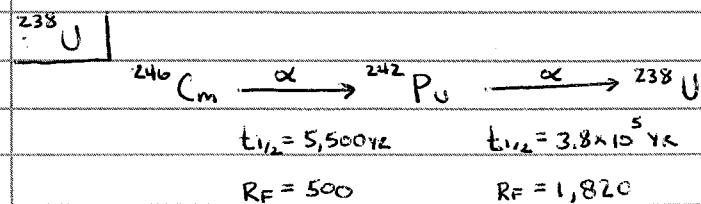 ²³⁸U
²⁴⁶Cm —α→ ²⁴²Pu —α→ ²³⁸U
t₁/₂ = 5,500 YR t₁/₂ = 3.8×10⁵ YR
RF = 500 RF = 1,820